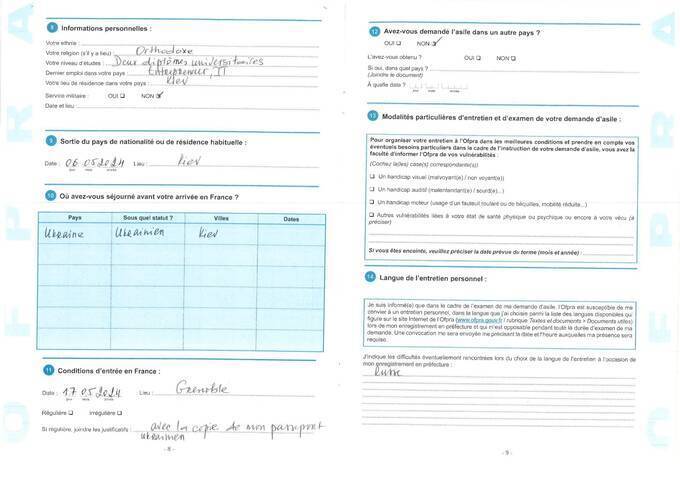 8 Informations personnelles :
Votre ethnie :
Votre religion (s'il y a lieu) : Orthodoxe
Votre niveau d'études : Deux diplômes universitaires
Dernier emploi dans votre pays : Entrepreneur, IT
Votre lieu de résidence dans votre pays : Kiev
Service militaire : OUI ❑ NON ❑
Date et lieu :
9 Sortie du pays de nationalité ou de résidence habituelle :
Date : 06 05 2024 Lieu : Kiev
jour mois année
10 Où avez-vous séjourné avant votre arrivée en France ?
Pays Sous quel statut ? Villes Dates
Ukraine Ukrainien Kiev
11 Conditions d'entrée en France :
Date : 17 05 2024 Lieu : Grenoble
jour mois année
Régulière ❑ Irrégulière ❑
Si régulière, joindre les justificatifs : avec la copie de mon passport
ukrainien
- 8 -
12 Avez-vous demandé l'asile dans un autre pays ?
OUI ❑ NON ❑
L'avez-vous obtenu ? OUI ❑ NON ❑
Si oui, dans quel pays ?
(Joindre le document)
A quelle date ?
jour mois année
13 Modalités particulières d'entretien et d'examen de votre demande d'asile :
Pour organiser votre entretien à l'Ofpra dans les meilleures conditions et prendre en compte vos
éventuels besoins particuliers dans le cadre de l'instruction de votre demande d'asile, vous avez la
faculté d'informer l'Ofpra de vos vulnérabilités :
(Cochez la(les) case(s) correspondante(s))
❑ Un handicap visuel (malvoyant(e) / non voyant(e))
❑ Un handicap auditif (malentendant(e) / sourd(e)...)
❑ Un handicap moteur (usage d'un fauteuil roulant ou de béquilles, mobilité réduite...)
❑ Autres vulnérabilités liées à votre état de santé physique ou psychique ou encore à votre vécu (à
préciser)
Si vous êtes enceinte, veuillez préciser la date prévue du terme (mois et année) :
14 Langue de l'entretien personnel :
Je suis informé(e) que dans le cadre de l'examen de ma demande d'asile, l'Ofpra est susceptible de me
convier à un entretien personnel, dans la langue que j'ai choisie parmi la liste des langues disponibles qui
figure sur le site Internet de l'Ofpra (www.ofpra.gouv.fr / rubrique Textes et documents > Documents utiles)
lors de mon enregistrement en préfecture et qui m'est opposable pendant toute la durée d'examen de ma
demande. Une convocation me sera envoyée me précisant la date et l'heure auxquelles ma présence sera
requise.
J'indique les difficultés éventuellement rencontrées lors du choix de la langue de l'entretien à l'occasion de
mon enregistrement en préfecture :
Russe
- 9 -
OFPRA
OFPRA